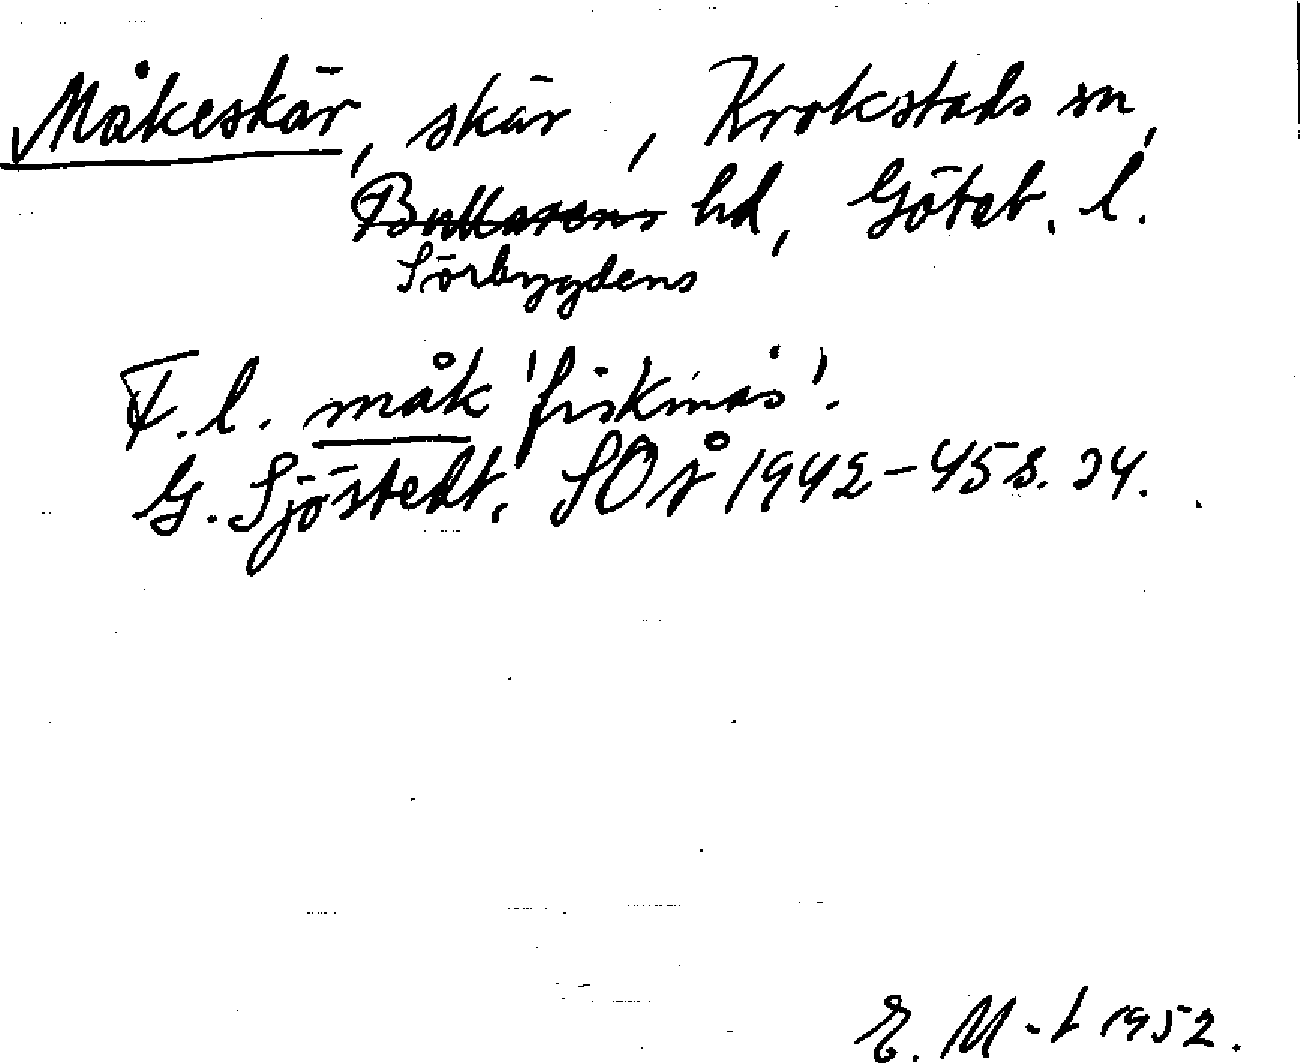 Måkeskär, skär, Krokstads sn,
Bullarens hd, Göteb. l.
Sörbygdens
F.l. måk 'fiskmås'.
G. Sjöstedt, SOÅ 1942–45 s. 24.
E. M-t 1952.